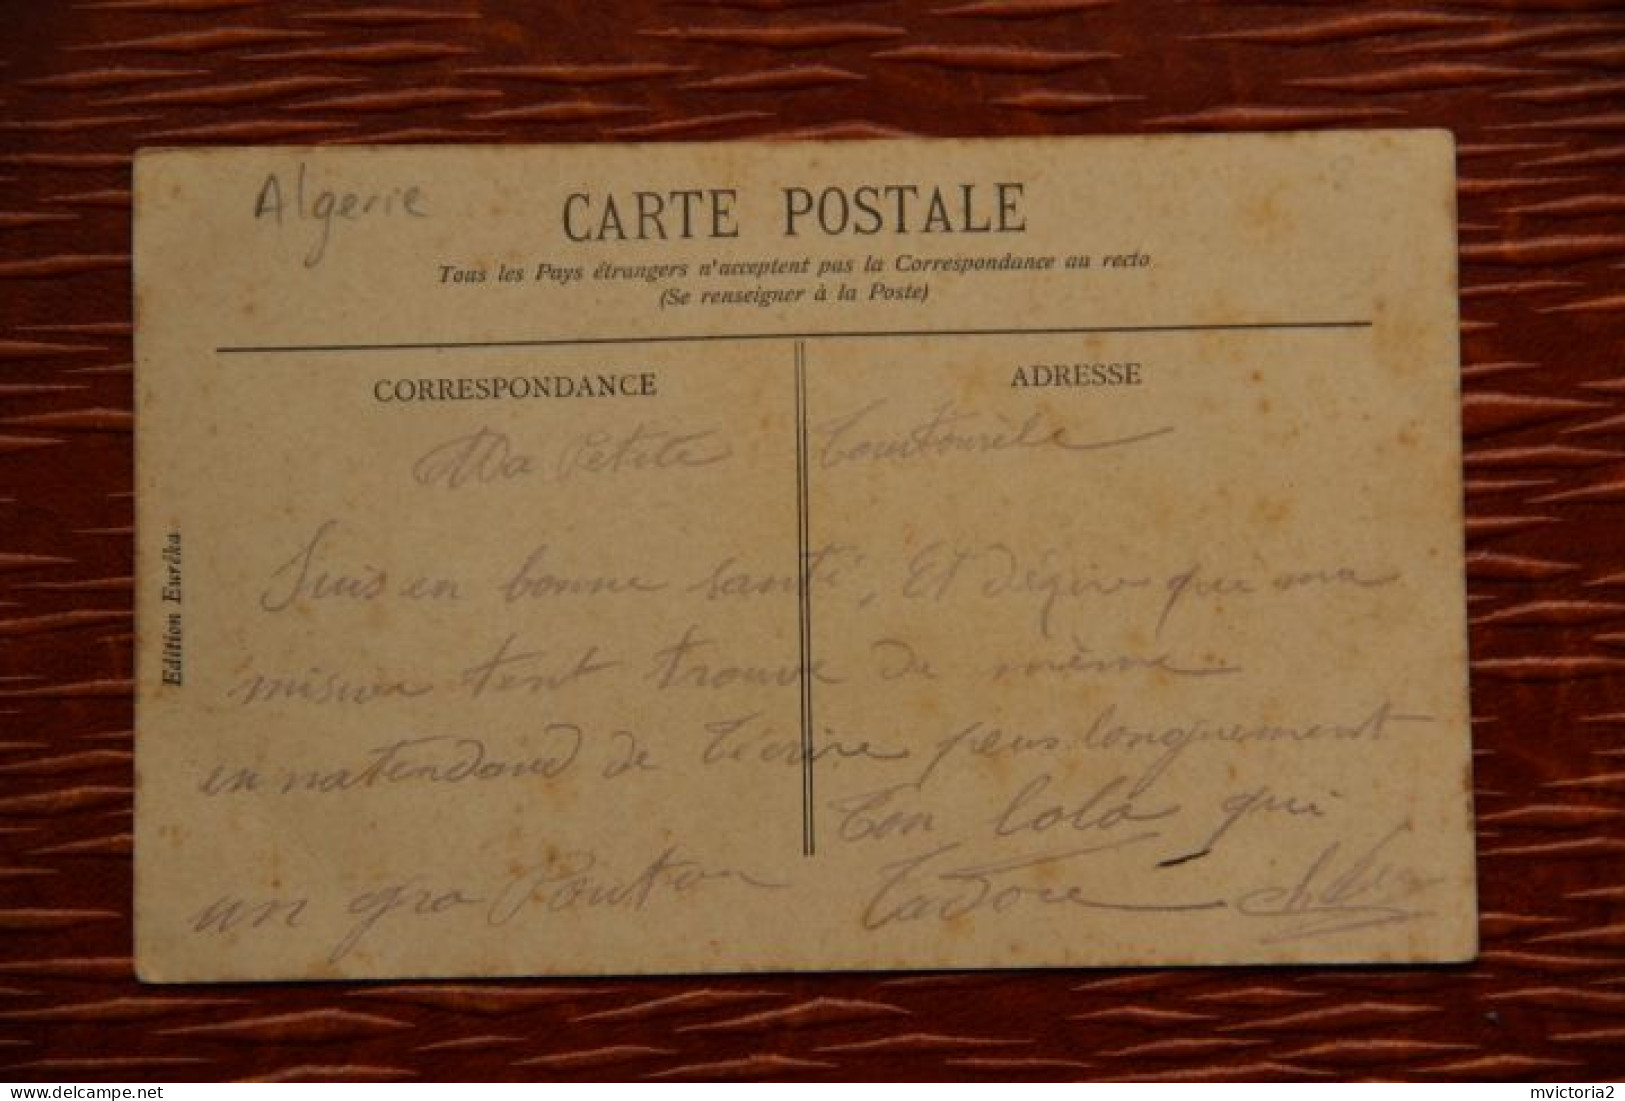 Algerie
CARTE POSTALE
Tous les Pays étrangers n'acceptent pas la Correspondance au recto
(Se renseigner à la Poste)
CORRESPONDANCE
ADRESSE
Edition Eurêka
Ma Petite Tourtourèle
Suis en bonne santé, Et dézire que ma
tent trouve de même
en natendand de t'écrire peus longuement
Ton lolo qui
un gro Pouton
t'adore
mvictoria2